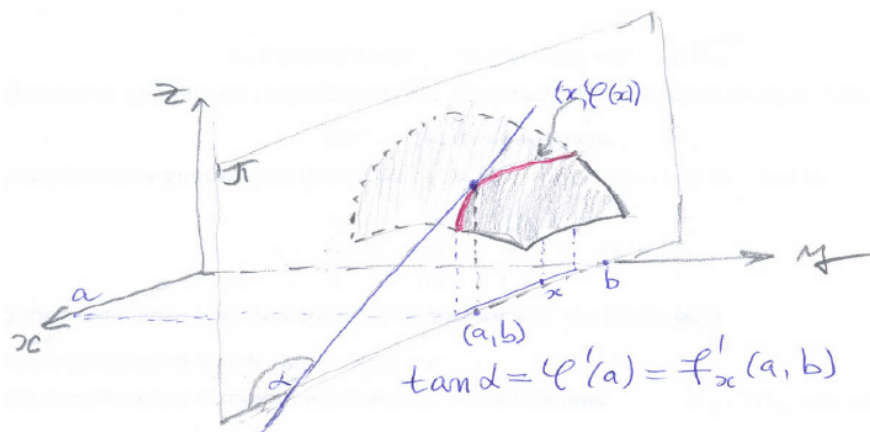 z
(x, φ(x))
π
y
a
x
b
x
(a,b)
α
tan α = φ'(a) = f'ₓ(a, b)